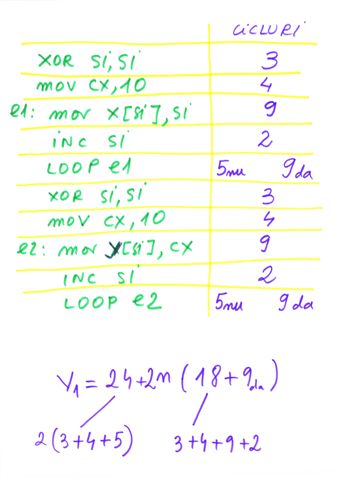 CICLURI
XOR Si,Si 3
mov CX,10 4
e1: mov X[si],si 9
iNC Si 2
LOOP e1 5nu 9da
XOR Si,Si 3
mov CX,10 4
e2: mov y[si],CX 9
iNC Si 2
LOOP e2 5nu 9da
V1=24+2n(18+9da)
2(3+4+5) 3+4+9+2